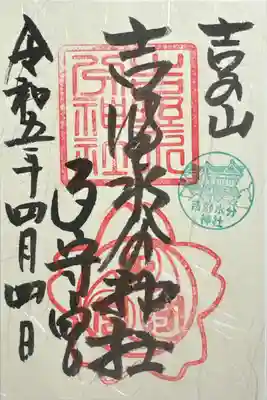 吉野山
吉野水分神社
子守宮
令和五年四月四日
吉野水分神社
吉野水分
神社